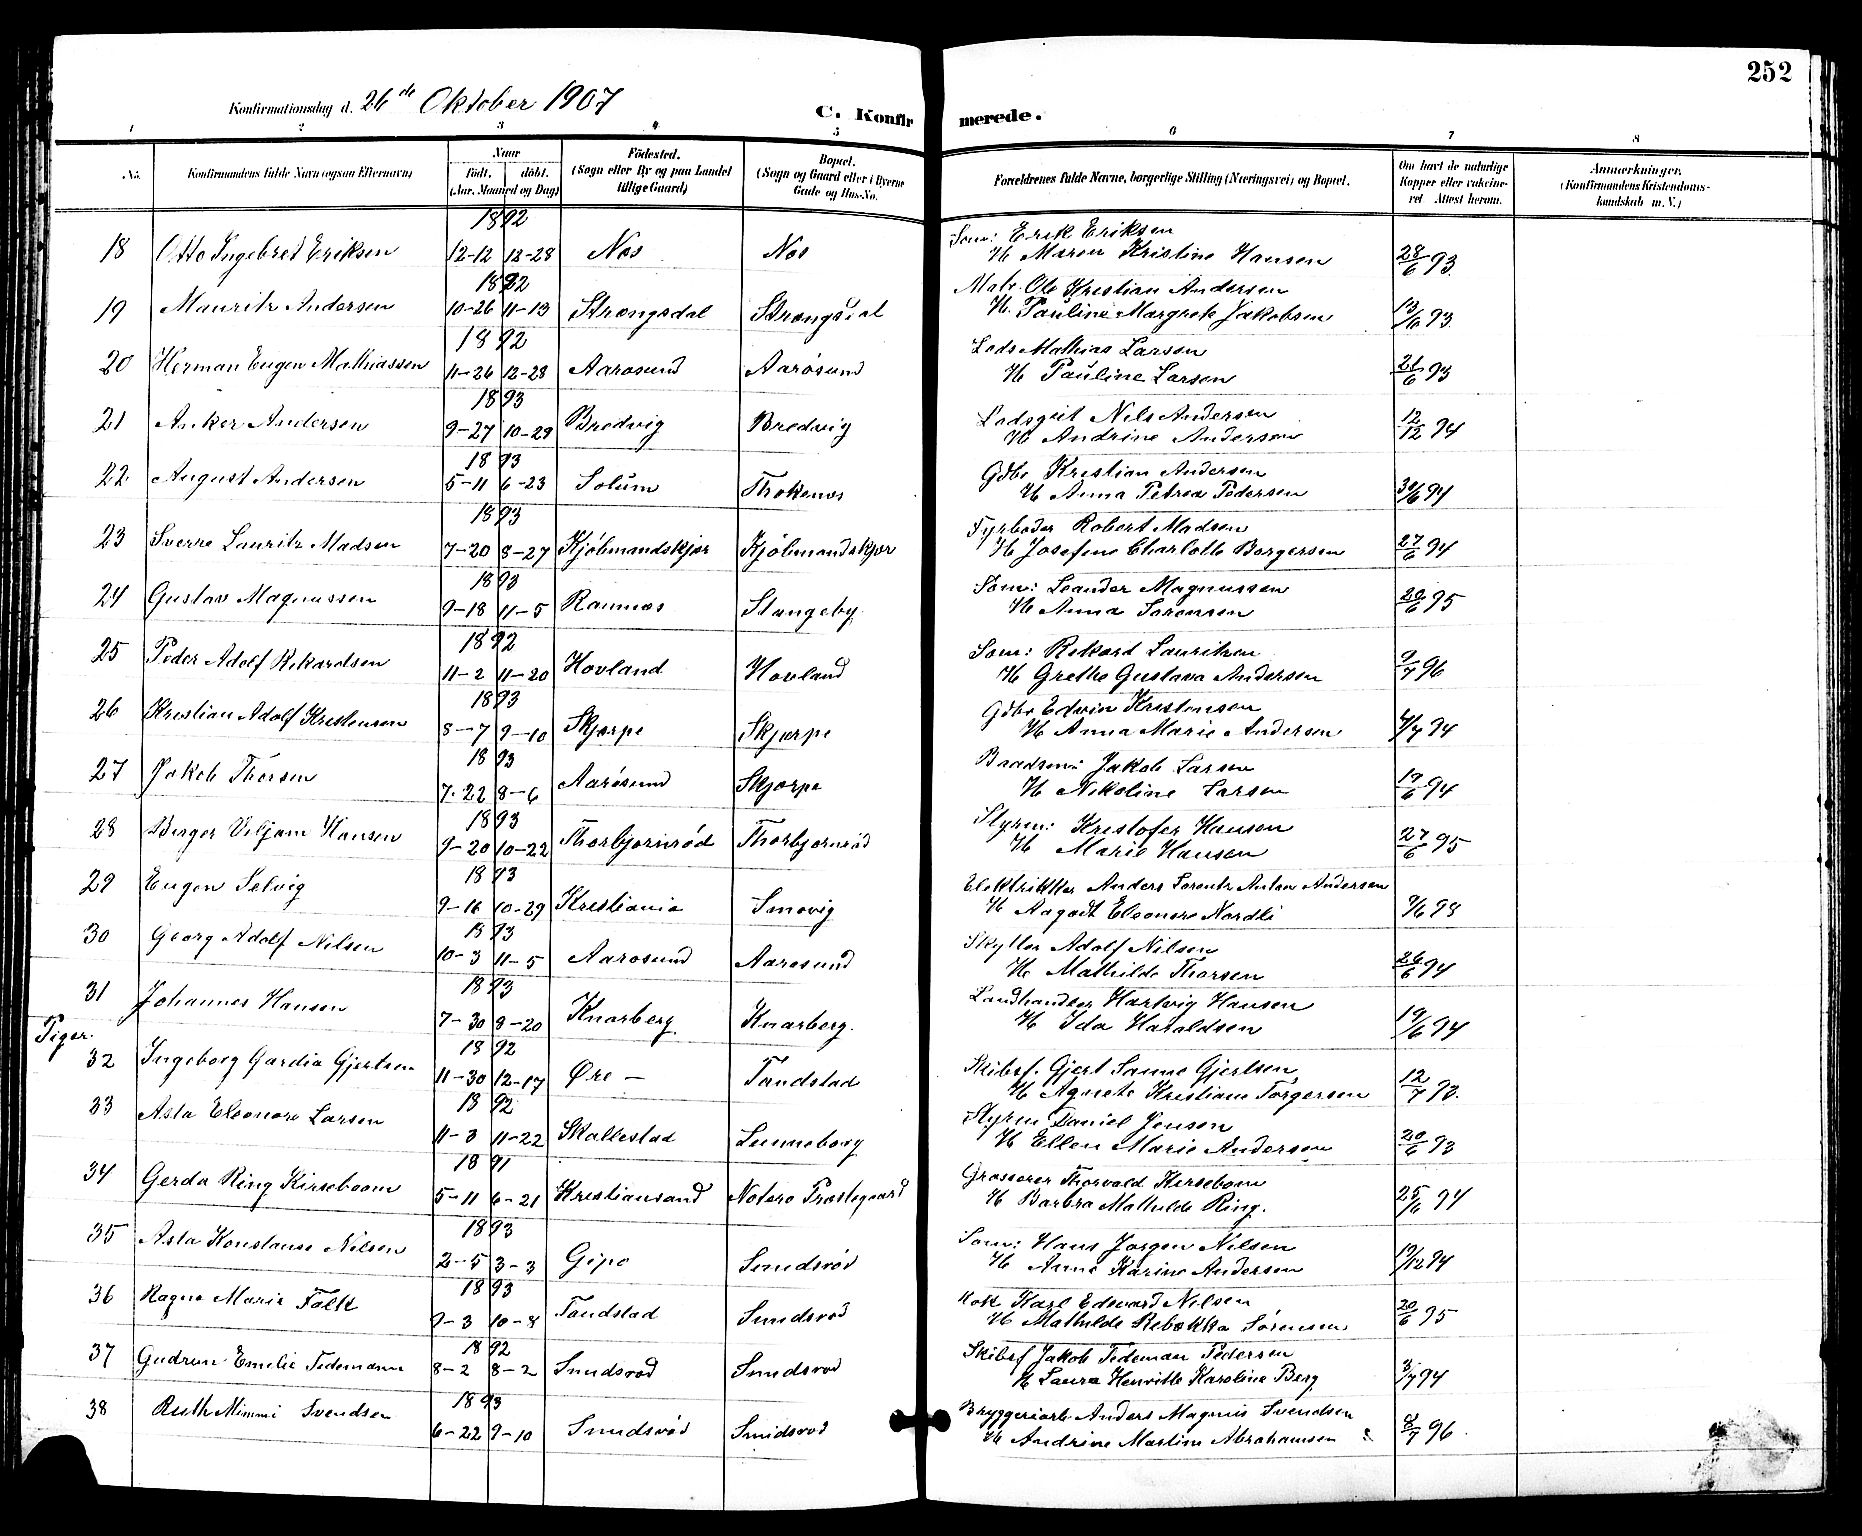 252
Konfirmationsdag d. 26de Oktober 1907
C. Konfirmerede.
1 2 3 4 5 6 7 8
No. Konfirmandens fulde Navn (ogsaa Efternavn) Naar født, døbt. (Aar, Maaned og Dag) Fødested. (Sogn eller By og paa Landet tillige Gaard) Bopæl. (Sogn og Gaard eller i Byerne Gade og Hus-No. Forældrenes fulde Navne, borgerlige Stilling (Næringsvei) og Bopæl. Om havt de naturlige Kopper eller vakcineret. Attest herom. Anmærkninger. (Konfirmandens Kristendomskundskab m. V.)
1892
18 Otto Ingebret Eriksen 12-12 12-28 Nes Nes Søm: Erik Eriksen
H Maren Kristine Hansen 28/6 93
1892
19 Mauritz Andersen 10-26 11-13 Strengsdal Strengsdal Matr. Ole Kristian Andersen
H. Pauline Margrete Jakobsen 13/6 93
1892
20 Herman Eugen Mathiassen 11-26 12-28 Aarøsund Aarøsund Lods Mathias Larsen
H Pauline Larsen 21/6 93
1893
21 Anker Andersen 9-27 10-29 Bredvig Bredvig Lodsgut Nils Andersen
H Andrine Andersen 12/12 94
1893
22 August Andersen 5-11 6-23 Solum Thokenes Gdbr Kristian Andersen
H Anna Petrea Pedersen 30/6 94
1893
23 Sverre Lauritz Madsen 7-20 8-27 Kjøbmandskjær Kjøbmandskjær Fyrbøder Robert Madsen
H Josefine Charlotte Borgersen 27/6 94
1893
24 Gustav Magnussen 9-18 11-5 Ramnes Stangeby Søm: Leander Magnussen
H Anna Sørensen 20/6 95
1892
25 Peder Adolf Rikardsen 11-2 11-20 Hovland Hovland Søm: Rikard Lauritzen
H Grethe Gustava Andersen 9/7 96
1893
26 Kristian Adolf Kristensen 8-7 9-10 Skjerpe Skjerpe Gdbr Edvin Kristensen
H Anna Marie Andersen 4/7 94
1893
27 Jakob Thorsen 7-22 8-6 Aarøsund Skjerpe Brædsem: Jakob Larsen
H Nikoline Larsen 19/6 94
1893
28 Birger Viljam Hansen 9-20 10-22 Thorbjørnrød Thorbjørnrød Styrm: Kristofer Hansen
H Marie Hansen 27/6 95
1893
29 Eugen Selvig 9-16 10-29 Kristiania Smovig Elektrikker Anders Lorentz Anton Andersen
H Aagodt Eleonore Nordli 9/6 98
1893
30 Georg Adolf Nilsen 10-3 11-5 Aarøsund Aarøsund Skytter Adolf Nilsen
H Mathilde Thorsen 26/6 94
1893
31 Johannes Hansen 7-30 8-20 Knarberg Knarberg. Landhandler Hartvig Hansen
H Ida Haraldsen 19/6 94
Piger.
1892
32 Ingeborg Gardia Gjertsen 11-30 12-17 Øre - Tandstad Skibsf. Gjert Sanne Gjertsen
H Agnete Kristiane Torgersen 12/7 93.
1892
33 Asta Eleonore Larsen 11-3 11-22 Skallestad Sunneborg Styrm Daniel Jensen
H Ellen Marie Andersen 20/6 93
1891
34 Gerda Ring Kirseboom 5-11 6-21 Kristiansand Notero Prestegaard Grosserer Thorvald Kirsebom
H Barbra Mathilde Ring. 25/6 94
1893
35 Asta Konstanse Nilsen 2-5 3-3 Gipø Smidsrød Søm: Hans Jørgen Nilsen
H Anne Karine Andersen 19/12 94
1893
36 Ragna Marie Falk 9-3 10-8 Tandstad Smidsrød Kok Karl Edevard Nilsen
H Mathilde Rebekka Sørensen 20/6 95
1892
37 Gudrun Emilie Tidemann 8-2 8-2 Smidsrød Smidsrød Skibsf Jakob Tidemann Pedersen
H Laura Henritte Karoline Berg 3/7 94
1893
38 Ruth Mimmi Svendsen 6-22 9-10 Smidsrød Smidsrød Bryggeriarb Anders Magnus Svendsen
H Andrine Martine Abrahamsen 8/7 96